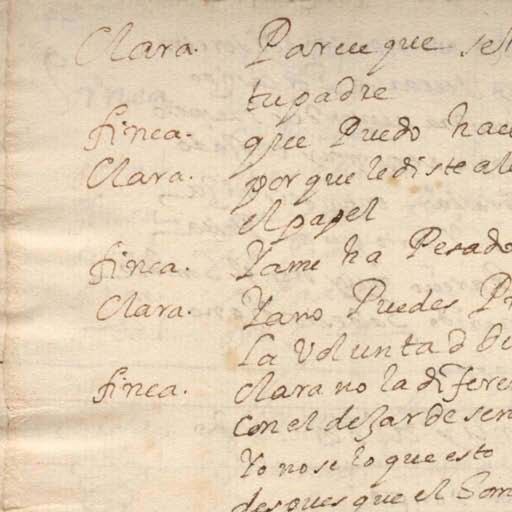 Clara. Pareceque se
tupadre
finea. que Puedo hace
Clara. por que lediste al
el papel
finea. Yame ha Pesado
Clara. Yano Puedes P
La Voluntad
finea. clara no la difere
con el dezar de sen
Yo nose lo que esto
despues que el Som